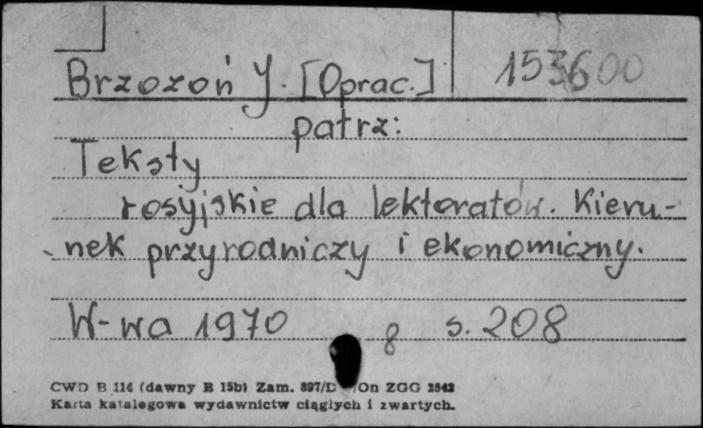 Brzozoń J. [Oprac.] 153600
patrz:
Teksty
rosyjskie dla lektoratów. Kieru-
nek przyrodniczy i ekonomiczny.
W-wa 1970 8 s. 208
CWD B 114 (dawny B 15b) Zam. 897/D /On ZGG 2542
Karta katalogowa wydawnictw ciągłych i zwartych.